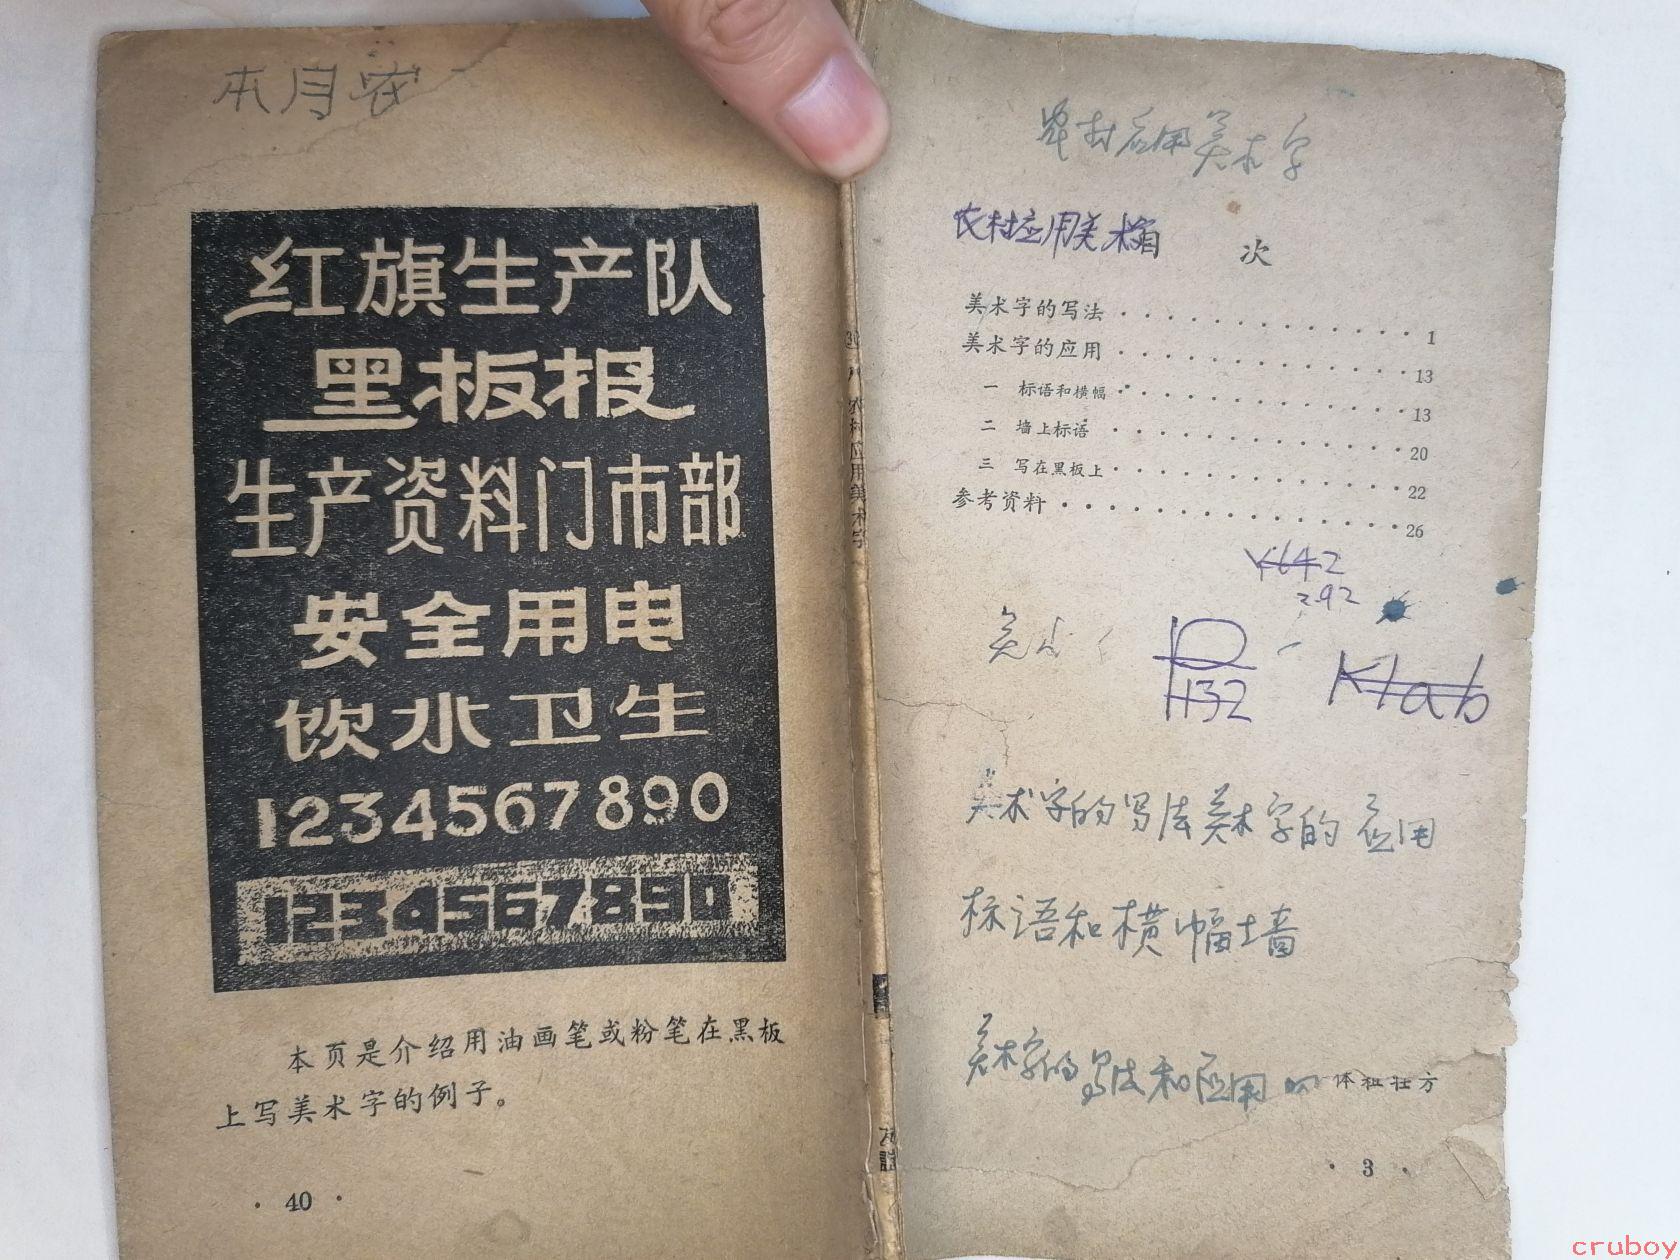 本月农
红旗生产队
黑板报
生产资料门市部
安全用电
饮水卫生
1234567890
1234567890
本页是介绍用油画笔或粉笔在黑板
上写美术字的例子。
· 40 ·
农村应用美术字
农村应用美术字
农村应用美术
目 次
美术字的写法 · · · · · · · · · · 1
美术字的应用 · · · · · · · · · · 13
一 标语和横幅 · · · · · · · · · · 13
二 墙上标语 · · · · · · · · · · 20
三 写在黑板上 · · · · · · · · · · 22
参考资料 · · · · · · · · · · · · 26
292
美术
美术字的写法美术字的应用
标语和横幅墙
美术字的写法和应用
体粗壮方
· 3 ·
cruboy